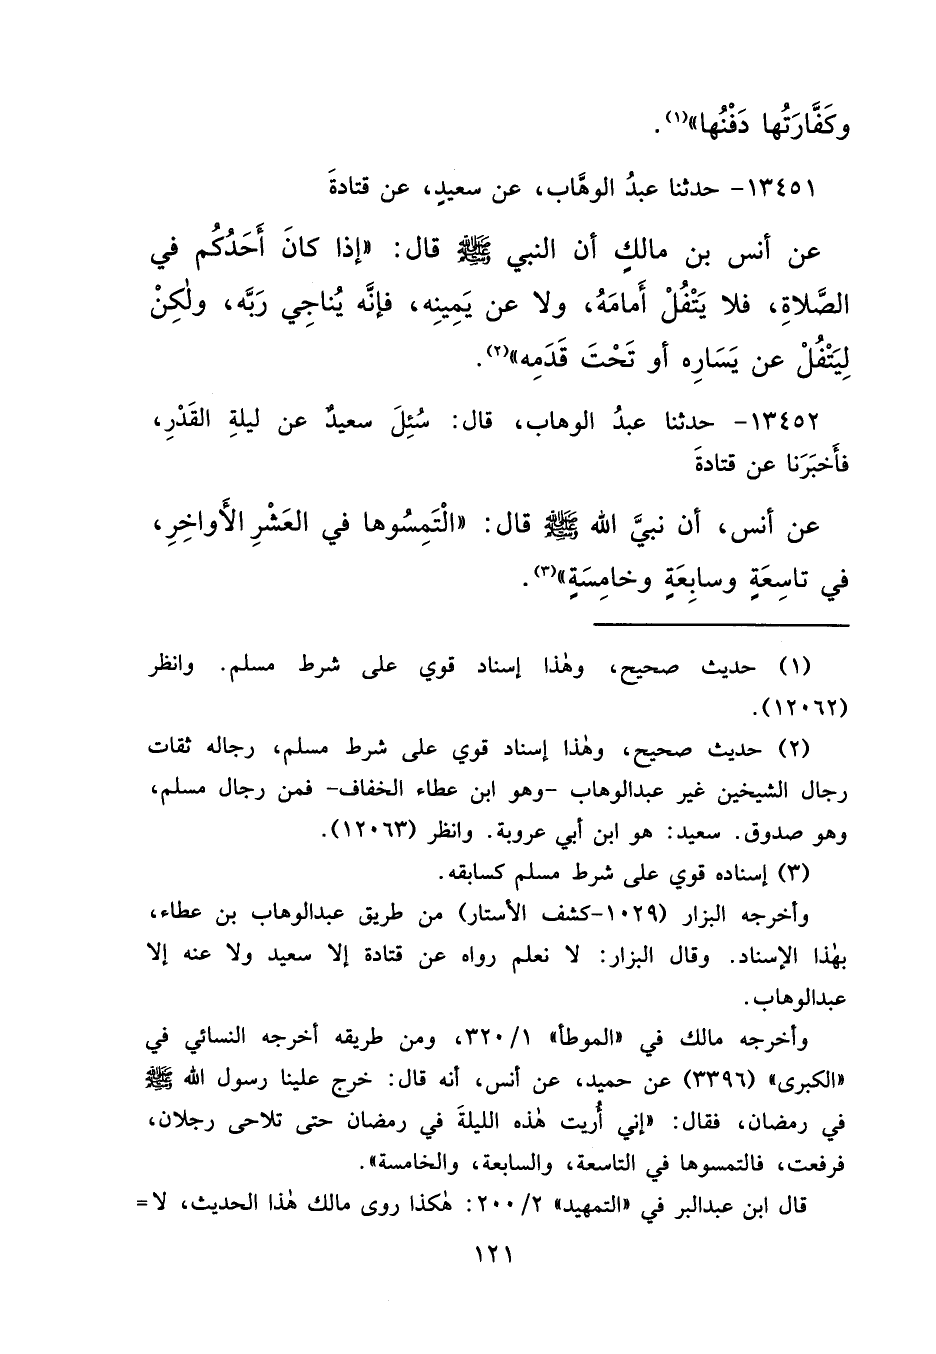 وكَفَّارَتُها دَفْنُها»(١).
١٣٤٥١- حدثنا عبدُ الوهَّاب، عن سعيدٍ، عن قتادةَ
عن أنس بن مالكٍ أن النبي ﷺ قال: «إذا كانَ أَحَدُكُم في
الصَّلاةِ، فلا يَتْفُلْ أَمامَهُ، ولا عن يَمِينِه، فإنَّه يُناجِي رَبَّه، ولٰكِنْ
لِيَتْفُلْ عن يَسَارِه أو تَحْتَ قَدَمِه»(٢).
١٣٤٥٢- حدثنا عبدُ الوهاب، قال: سُئِلَ سعيدٌ عن ليلةِ القَدْرِ،
فأَخبَرَنا عن قتادةَ
عن أنس، أن نبيَّ الله ﷺ قال: «الْتَمِسُوها في العَشْرِ الأَواخِرِ،
في تاسِعَةٍ وسابِعَةٍ وخامِسَةٍ»(٣).
(١) حديث صحيح، وهٰذا إسناد قوي على شرط مسلم. وانظر
(١٢٠٦٢).
(٢) حديث صحيح، وهٰذا إسناد قوي على شرط مسلم، رجاله ثقات
رجال الشيخين غير عبدالوهاب -وهو ابن عطاء الخفاف- فمن رجال مسلم،
وهو صدوق. سعيد: هو ابن أبي عروبة. وانظر (١٢٠٦٣).
(٣) إسناده قوي على شرط مسلم كسابقه.
وأخرجه البزار (١٠٢٩-كشف الأستار) من طريق عبدالوهاب بن عطاء،
بهٰذا الإسناد. وقال البزار: لا نعلم رواه عن قتادة إلا سعيد ولا عنه إلا
عبدالوهاب.
وأخرجه مالك في «الموطأ» ٣٢٠/١، ومن طريقه أخرجه النسائي في
«الكبرى» (٣٣٩٦) عن حميد، عن أنس، أنه قال: خرج علينا رسول الله ﷺ
في رمضان، فقال: «إني أُريت هٰذه الليلةَ في رمضان حتى تلاحى رجلان،
فرفعت، فالتمسوها في التاسعة، والسابعة، والخامسة».
قال ابن عبدالبر في «التمهيد» ٢٠٠/٢: هٰكذا روى مالك هٰذا الحديث، لا=
١٢١